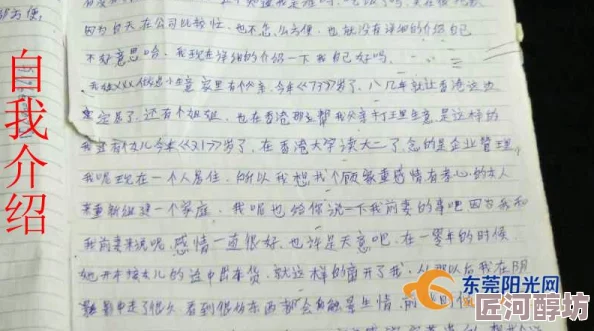 自我介绍
因为白天在公司比较忙,也不怎么方便,也就没有详细的介绍自己
不好意思哈,我现在详细的介绍一下我自己好吗,
我姓XXX 做点小生意 家里有个父亲,今年<<73>>岁了,八几年就让香港这边
定居了,还有个姐姐,也在香港那边帮我父亲打理生意,是这样的
我还有个女儿今年<<21>>岁了,在香港大学读大二了,念的是企业管理,
我呢现在一个人居住,所以我想找个顾家重感情有孝心的女人
来重新组建一个家庭,我呢也给你说一下我前妻的事吧因为我和
我前妻来说呢,感情一直很好,也许是天意吧,在一零年的时候
她开车接女儿的途中出车祸,就这样的离开了我,从那以后我在阴
影中走了很久 看到很多东西都会触景生情,前
东莞阳光网
匠河醇坊